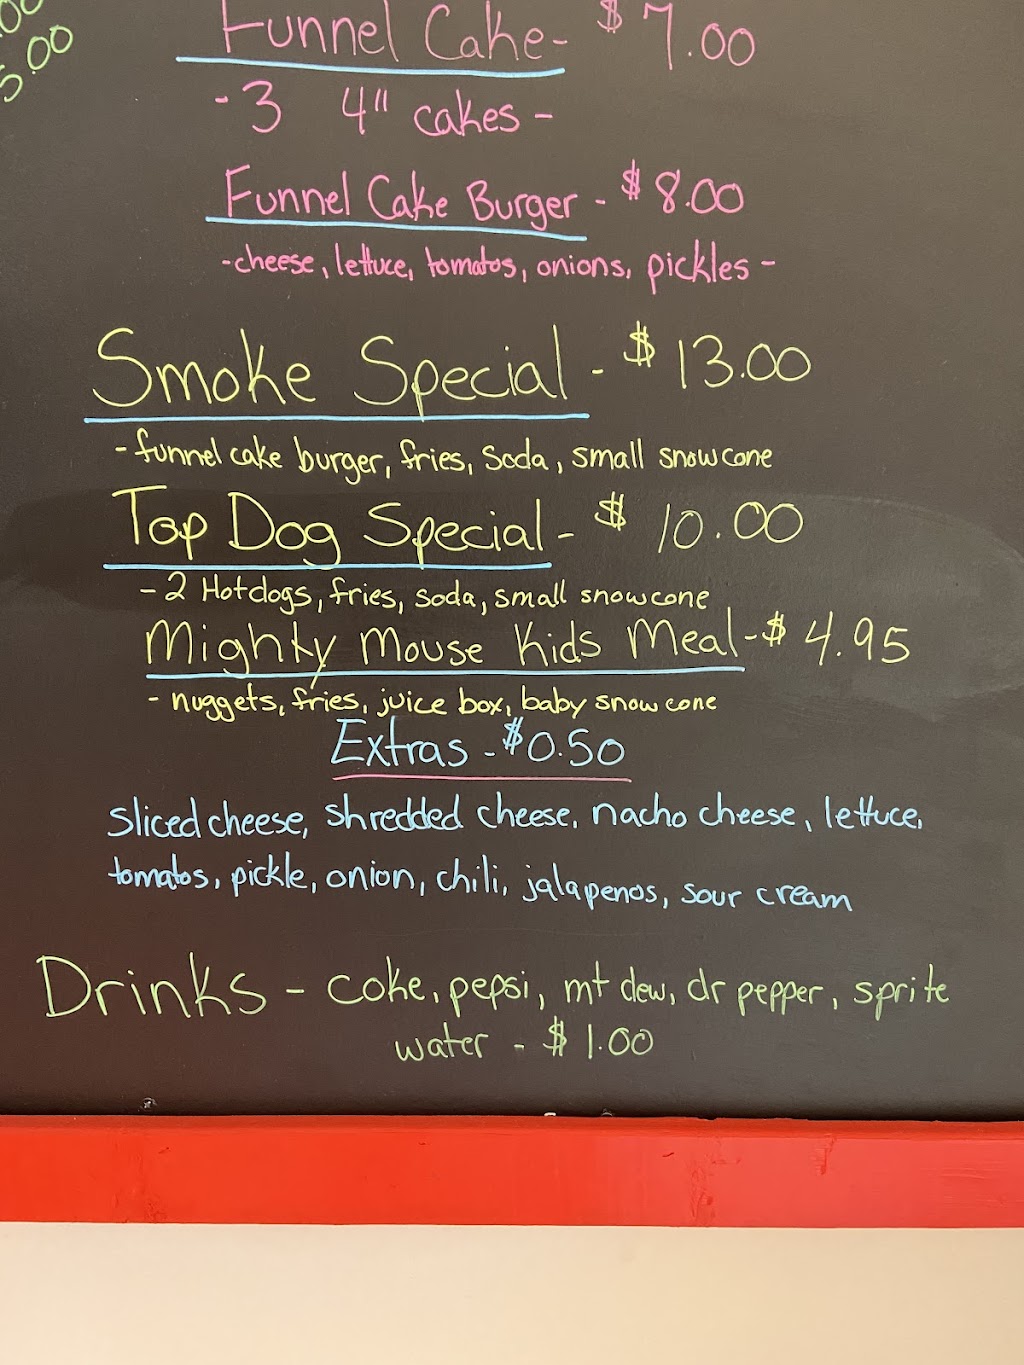 5.00
Funnel Cake - $7.00
- 3 4" cakes -
Funnel Cake Burger - $8.00
- cheese, lettuce, tomatos, onions, pickles -
Smoke Special - $13.00
- funnel cake burger, fries, soda, small snowcone
Top Dog Special - $10.00
- 2 Hotdogs, fries, soda, small snowcone
Mighty Mouse Kids Meal - $4.95
- nuggets, fries, juice box, baby snowcone
Extras - $0.50
sliced cheese, shredded cheese, nacho cheese, lettuce,
tomatos, pickle, onion, chili, jalapenos, sour cream
Drinks - coke, pepsi, mt dew, dr pepper, sprite
water - $1.00